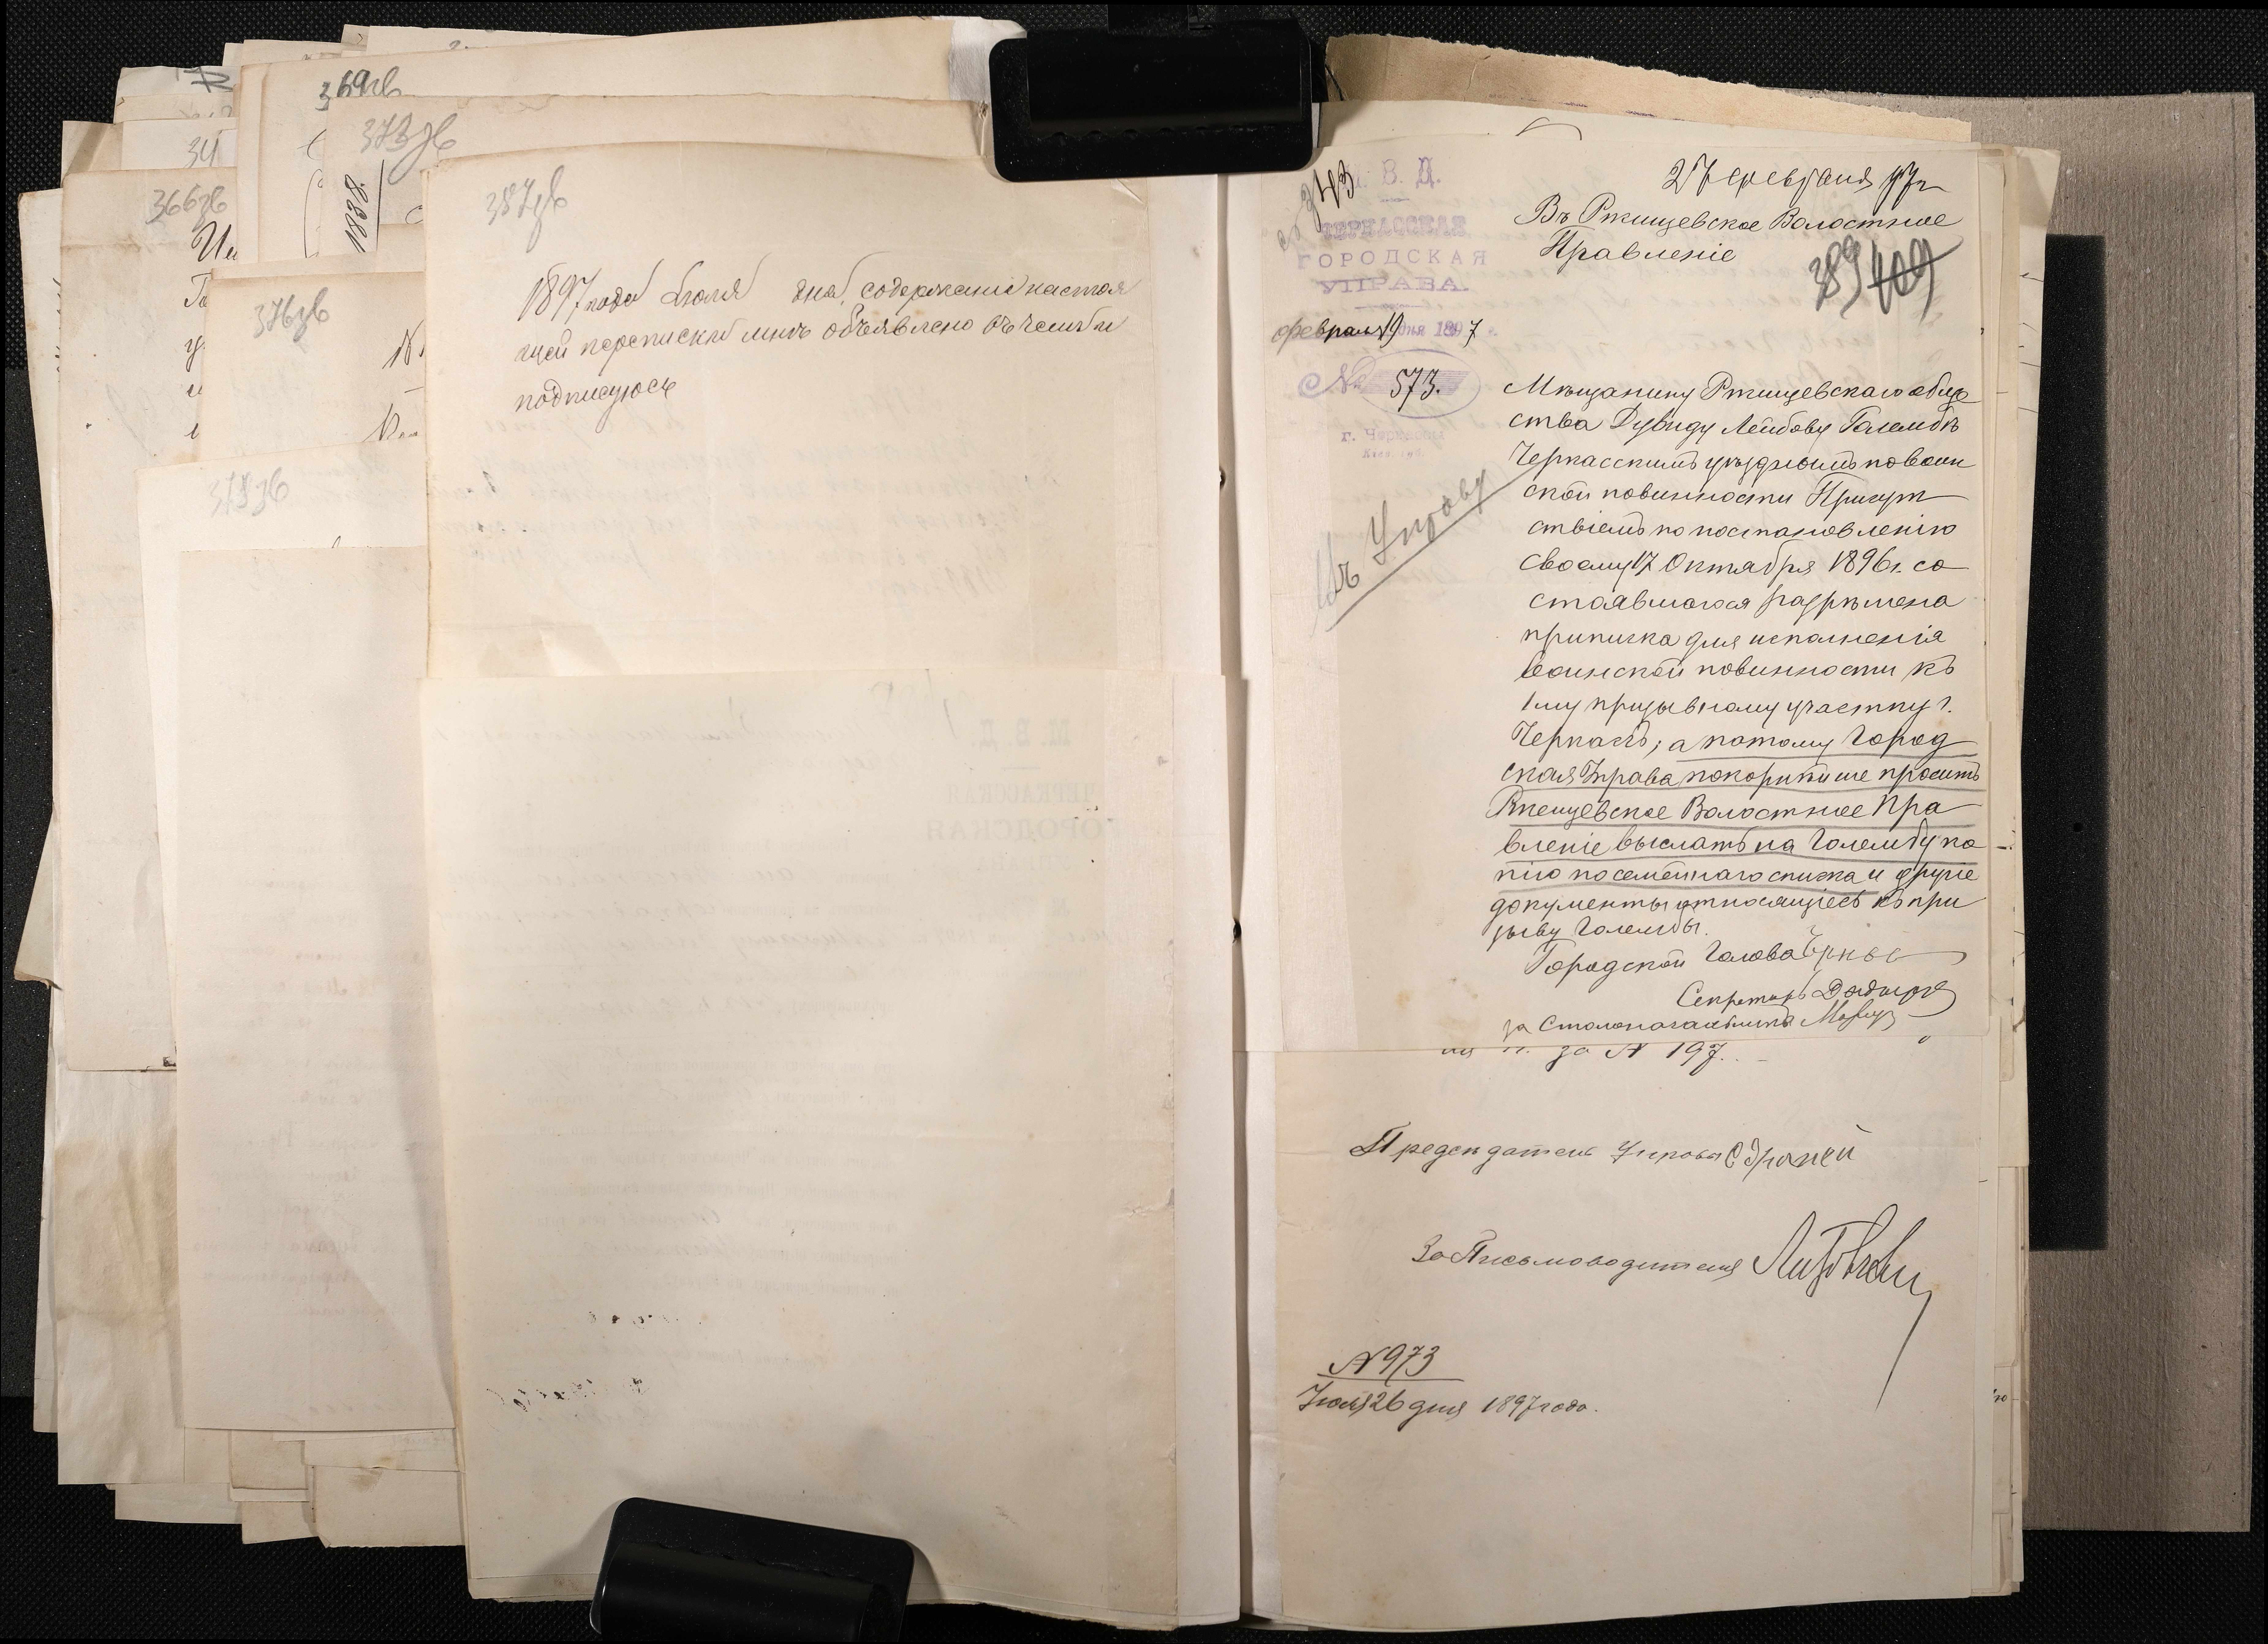 369зв
373зв
34
1888
366зв
376зв
379зв
387зв
1897 года Июля дня, содержание настоя
щей переписки мнѣ объявлено въ чемъ и
подписуюсь
М. В. Д.
ЧЕРКАССКАЯ
ГОРОДСКАЯ
343
М. В. Д.
ЧЕРКАССКАЯ
ГОРОДСКАЯ
УПРАВА.
февраля 19 дня 1897 г.
№ 573.
г. Черкассы
Кіев. губ.
Въ Управу
27 февраля 97 г
Въ Ртищевское Волостное
Правленіе
389 409
Мѣщанину Ртищевскаго обще
ства Дувиду Лейбову Голембѣ
Черкасскимъ уѣзднымъ по воин
ской повинности Присут
ствіемъ по постановленію
своему 17 Октября 1896 г. со
стоявшагося разрѣшена
приписка для исполненія
воинской повинности къ
1му призывному участку г.
Черкасъ; а потому Город
ская Управа покорнѣйше проситъ
Ртищевское Волостное Пра
вленіе выслать на Голембу ко
пію посемейнаго списка и другіе
документы относящіесь къ при
зыву Голембы.
Городской Голова
Секретарь
за Столоначальника
за № 197.
Предсѣдатель Управы
За Письмоводителя
№ 973
Іюля 26 дня 1897 года.